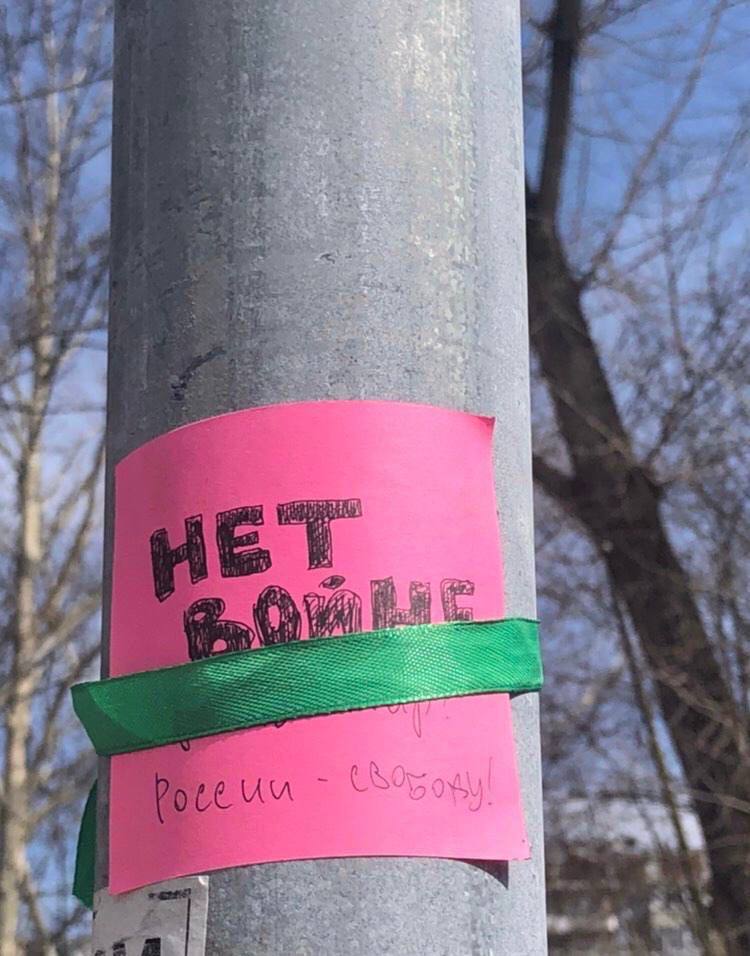 НЕТ
ВОЙНЕ
России - свободу!